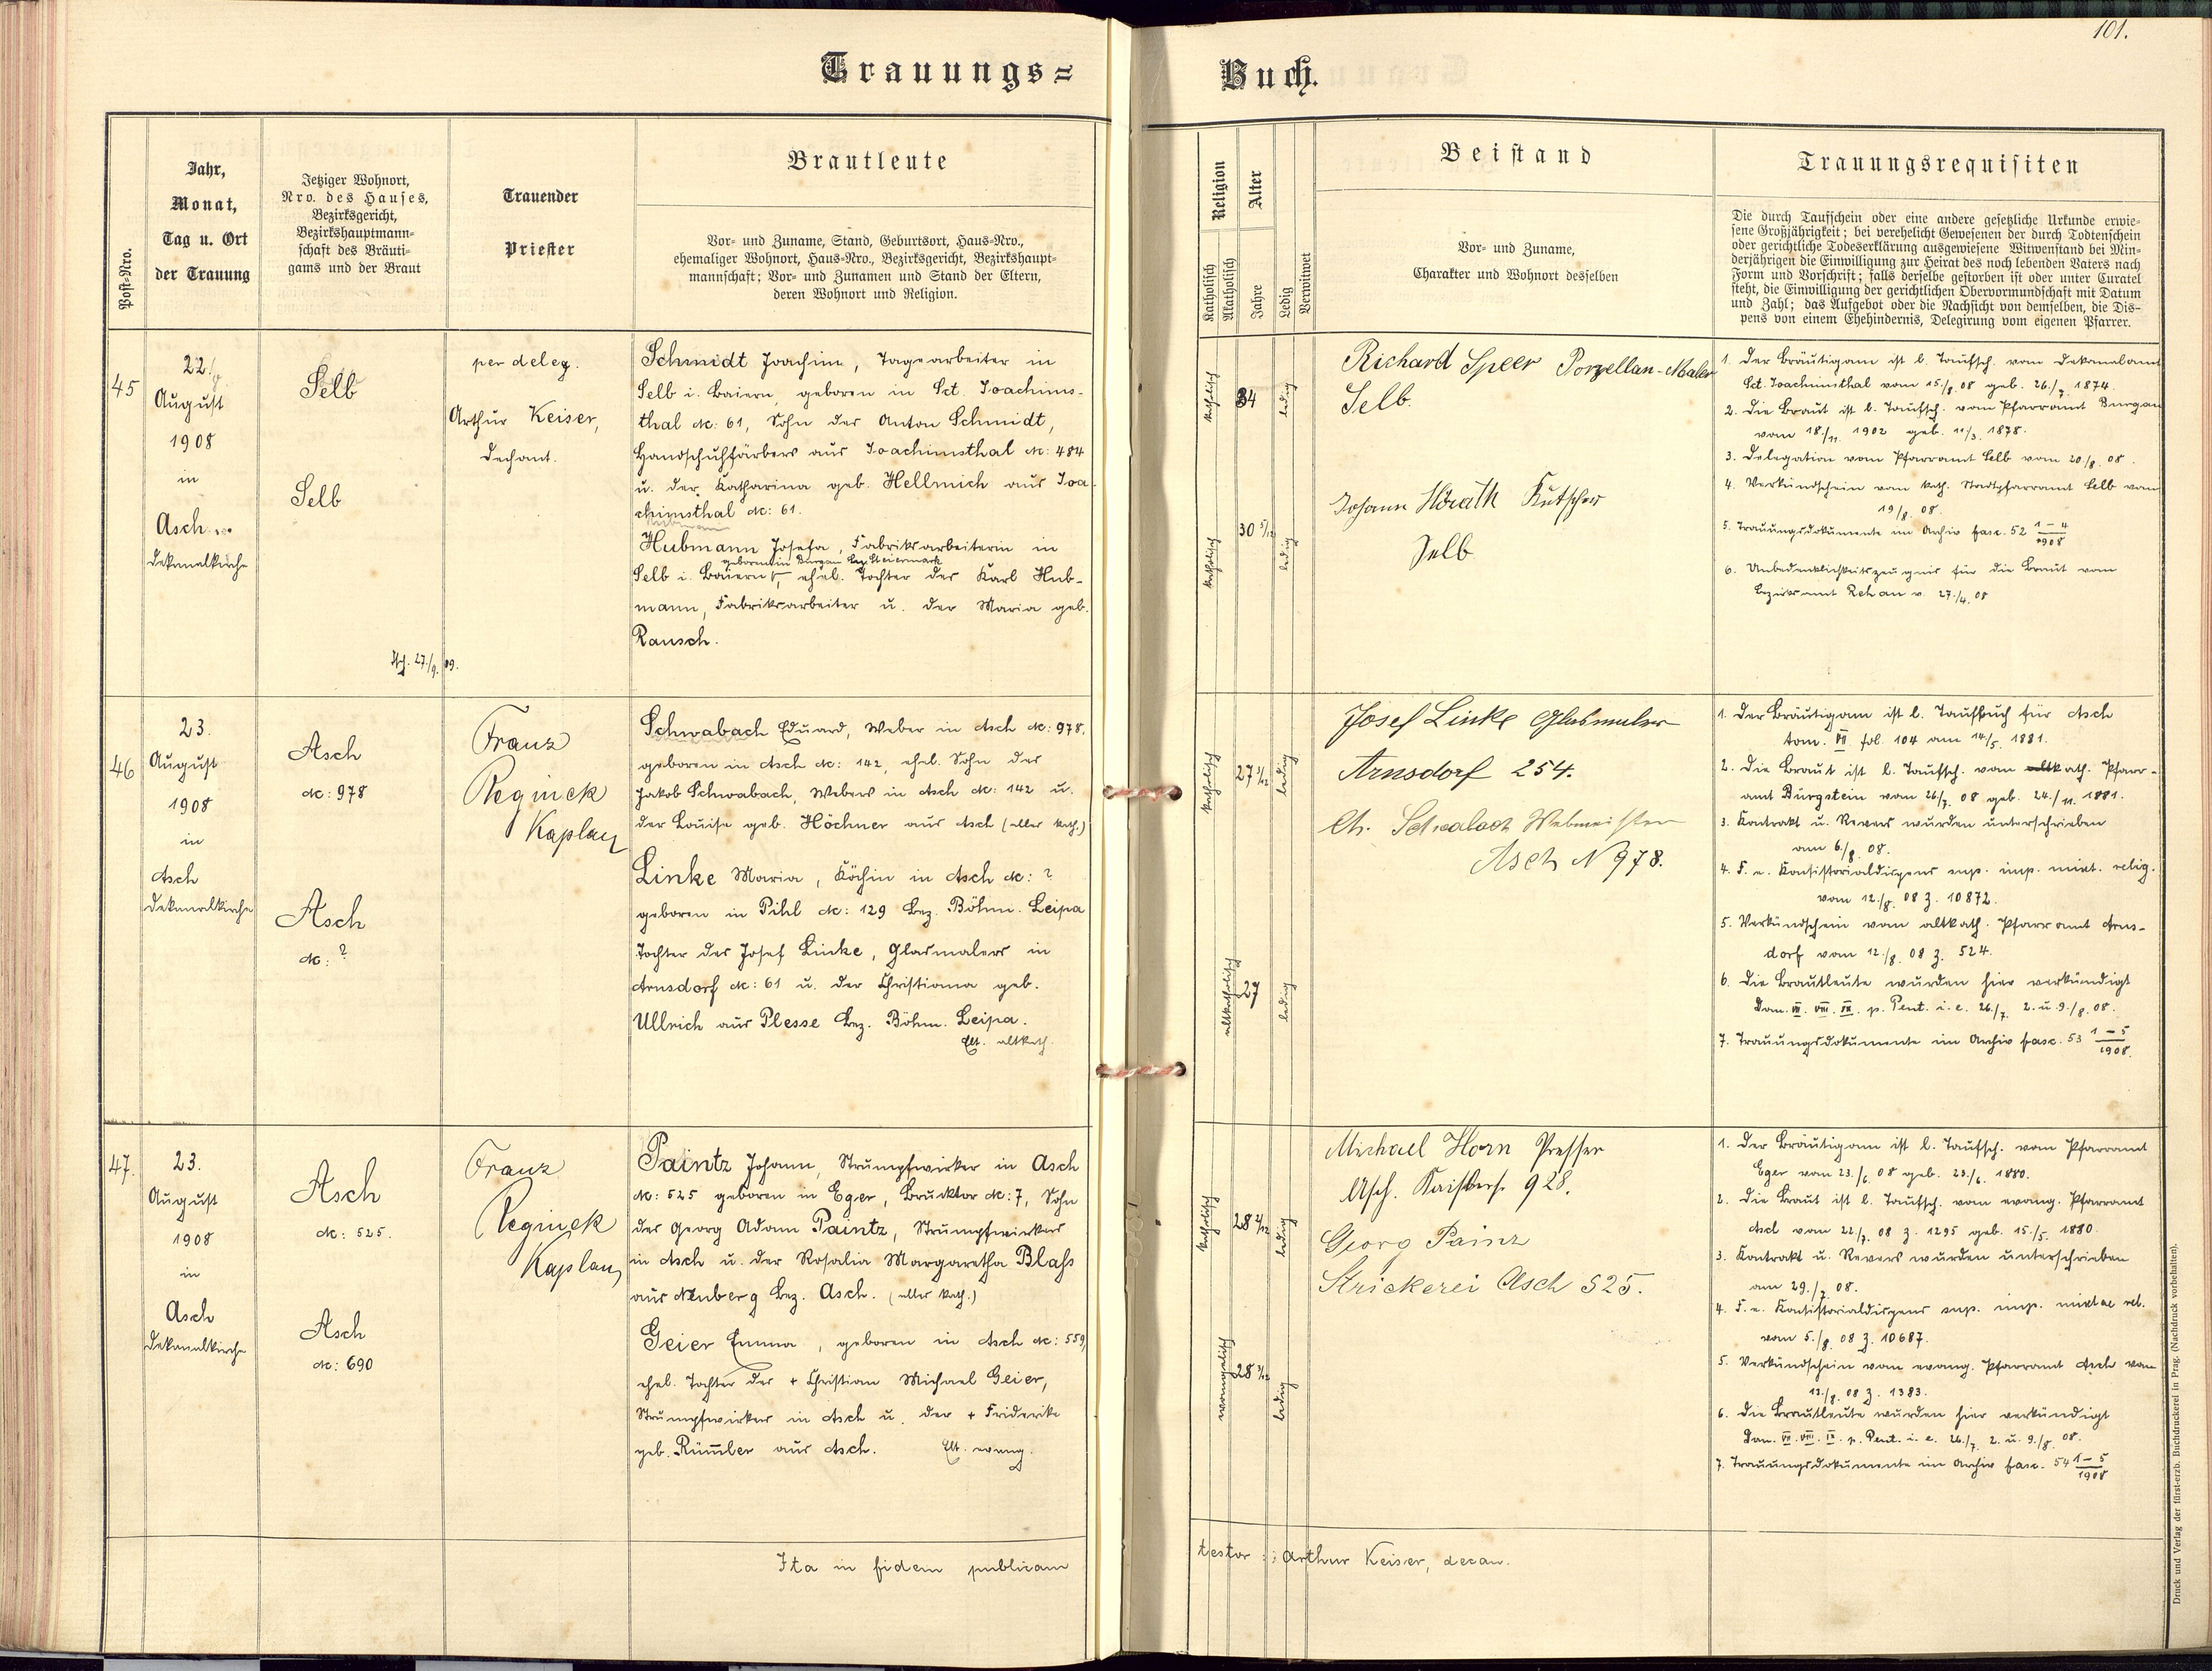 101.
Trauungs=Buch.
Post-Nro.
Jahr,
Monat,
Tag u. Ort
der Trauung
Jetziger Wohnort,
Nro. des Hauses,
Bezirksgericht,
Bezirkshauptmann-
schaft des Bräuti-
gams und der Braut
Trauender
Priester
Brautleute
Vor- und Zuname, Stand, Geburtsort, Haus-Nro.,
ehemaliger Wohnort, Haus-Nro., Bezirksgericht, Bezirkshaupt-
mannschaft; Vor- und Zunamen und Stand der Eltern,
deren Wohnort und Religion.
Religion
Katholisch
Akatholisch
Alter
Jahre
Ledig
Verwitwet
Beistand
Vor- und Zuname,
Charakter und Wohnort desselben
Trauungsrequisiten
Die durch Taufschein oder eine andere gesetzliche Urkunde erwie-
sene Großjährigkeit; bei verehelicht Gewesenen der durch Todtenschein
oder gerichtliche Todeserklärung ausgewiesene Witwenstand bei Min-
derjährigen die Einwilligung zur Heirat des noch lebenden Vaters nach
Form und Vorschrift; falls derselbe gestorben ist oder unter Curatel
steht, die Einwilligung der gerichtlichen Obervormundschaft mit Datum
und Zahl; das Aufgebot oder die Nachsicht von demselben, die Dis-
pens von einem Ehehindernis, Delegirung vom eigenen Pfarrer.
45
22./
August
1908
in
Asch
Dekanalkirche
Selb
Selb
27./9. 09.
per deleg.
Arthur Keiser,
Dechant.
Schmidt Joachim, Tagearbeiter in
Selb i. Baiern, geboren in Sct. Joachims-
thal Nc: 61, Sohn des Anton Schmidt,
Handschuhfärbers aus Joachimsthal Nc: 484
u. der Katharina geb. Hellmich aus Joa-
chimsthal Nc: 61.
Hubmann Josefa, Fabriksarbeiterin in
geboren in Burgau Bez. Steiermark
Selb i. Baiern, ehel. Tochter des Karl Hub-
mann, Fabriksarbeiter u. der Maria geb.
Rausch.
katholisch
34
ledig
katholisch
30 5/12
ledig
Richard Speer Porzellan-Maler
Selb.
Johann Hörath Kutscher
Selb
1. Der Bräutigam ist l. Taufsch. vom Dekanalamt
Sct. Joachimsthal vom 15./8. 08 geb. 26./7. 1874.
2. Die Braut ist l. Taufsch. vom Pfarramt Burgau
vom 18./11. 1902 geb. 11/3. 1878.
3. Delegation vom Pfarramt Selb vom 20/8. 08.
4. Verkündschein vom kath. Stadtpfarramt Selb vom
19/8. 08.
5. Trauungsdokumente im Archiv fasc. 52 1-4/1908
6. Unbedenklichkeitszeugnis für die Braut vom
Bezirksamt Rehau v. 27./4. 08
46
23.
August
1908
in
Asch
Dekanalkirche
Asch
Nc: 978
Asch
Nc: ?
Franz
Reginek
Kaplan
Schwabach Eduard, Weber in Asch Nc: 978,
geboren in Asch Nc: 142, ehel. Sohn des
Jakob Schwabach, Webers in Asch Nc: 142 u.
der Louise geb. Höchner aus Asch (alles kath.)
Linke Maria, Köchin in Asch Nc: ?
geboren in Pihl Nc: 129 Bez. Böhm. Leipa
Tochter des Josef Linke, Glasmalers in
Arnsdorf Nc: 61 u. der Christiana geb.
Ullrich aus Plesse Bez. Böhm. Leipa.
Elt. altkath.
katholisch
27 3/12
ledig
altkatholisch
27
ledig
Josef Linke Glasmaler
Arnsdorf 254.
Ch. Schwabach Webmeister
Asch N 978.
1. Der Bräutigam ist l. Taufbuch für Asch
tom. VII fol. 104 am 14/5. 1881.
2. Die Braut ist l. Taufsch. vom altkath. Pfarr-
amt Bürgstein vom 26/7. 08 geb. 24./11. 1881.
3. Kontrakt u. Revers wurden unterschrieben
am 6./8. 08.
4. F. e. Konsistorialdispens sup. imp. mixt. relig.
vom 12./8. 08 Z. 10872.
5. Verkündschein vom altkath. Pfarramt Arns-
dorf vom 12./8. 08 Z. 524.
6. Die Brautleute wurden hier verkündigt
Dom. VII. VIII. IX. p. Pent. i. e. 26./7. 2. u. 9./8. 08.
7. Trauungsdokumente im Archiv fasc. 53 1-5/1908.
47.
23.
August
1908
in
Asch
Dekanalkirche
Asch
Nc: 525.
Asch
Nc: 690
Franz
Reginek
Kaplan
Paintz Johann, Strumpfwirker in Asch
Nc: 525 geboren in Eger, Brucktor Nc: 7, Sohn
des Georg Adam Paintz, Strumpfwirkers
in Asch u. der Rosalia Margaretha Blaß
aus Neuberg Bez. Asch. (alles kath.)
Geier Emma, geboren in Asch Nc: 559,
ehel. Tochter des + Christian Michael Geier,
Strumpfwirkers in Asch u. der + Friderike
geb. Rümler aus Asch. Elt. evang.
katholisch
28 2/12
ledig
evangelisch
28 3/12
ledig
Michael Horn Presser
Asch. Kaiserstr. 928.
Georg Painz
Strickerei Asch 525.
1. Der Bräutigam ist l. Taufsch. vom Pfarramt
Eger vom 23./6. 08 geb. 23./6. 1880.
2. Die Braut ist l. Taufsch. vom evang. Pfarramt
Asch vom 22./7. 08 Z. 1295 geb. 15./5. 1880.
3. Kontrakt u. Revers wurden unterschrieben
am 29./7. 08.
4. F. e. Konsistorialdispens sup. imp. mixtae rel.
vom 5./8. 08 Z. 10687.
5. Verkündschein vom evang. Pfarramt Asch vom
13./8. 08 Z. 1383.
6. Die Brautleute wurden hier verkündigt
Dom. VII. VIII. IX. p. Pent. i. e. 26./7. 2. u. 9./8. 08.
7. Trauungsdokumente im Archiv fasc. 54 1-5/1908
Ita in fidem publicam
testor: Arthur Keiser, decan.
Druck und Verlag der fürst-erzb. Buchdruckerei in Prag. (Nachdruck vorbehalten).